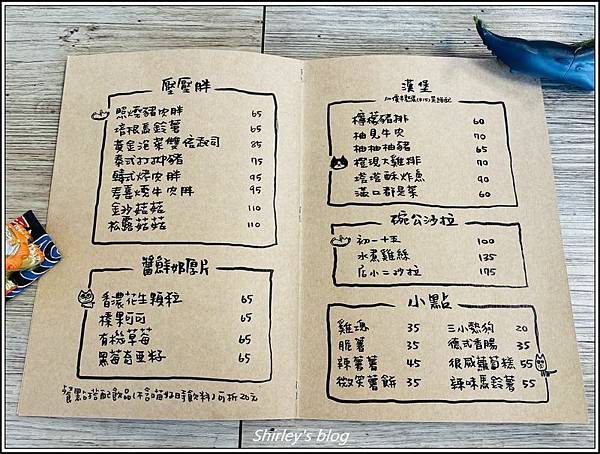 壓壓胖
照燒豬肉胖 65
培根馬鈴薯 65
黃金泡菜雙倍起司 85
泰式打拋豬 75
韓式燒肉胖 95
壽喜燒牛肉胖 95
金沙菇菇 110
松露菇菇 110
醬鮮奶厚片
香濃花生顆粒 65
榛果可可 65
有機草莓 65
黑莓奇亞籽 65
餐點搭配飲品(不含貓好時飲料)可折20元
漢堡
檸檬豬排 60
柚見牛肉 70
柚柚柚豬 65
椎現大雞排 70
塔塔酥炸魚 90
滿口都是菜 60
碗公沙拉
初一十五 100
水煮雞絲 135
店小二沙拉 175
小點
雞塊 35
脆薯 35
辣薯薯 45
微笑薯餅 35
三小熱狗 20
德式香腸 35
很威蘿蔔糕 55
辣味馬鈴薯 55
Shirley's blog